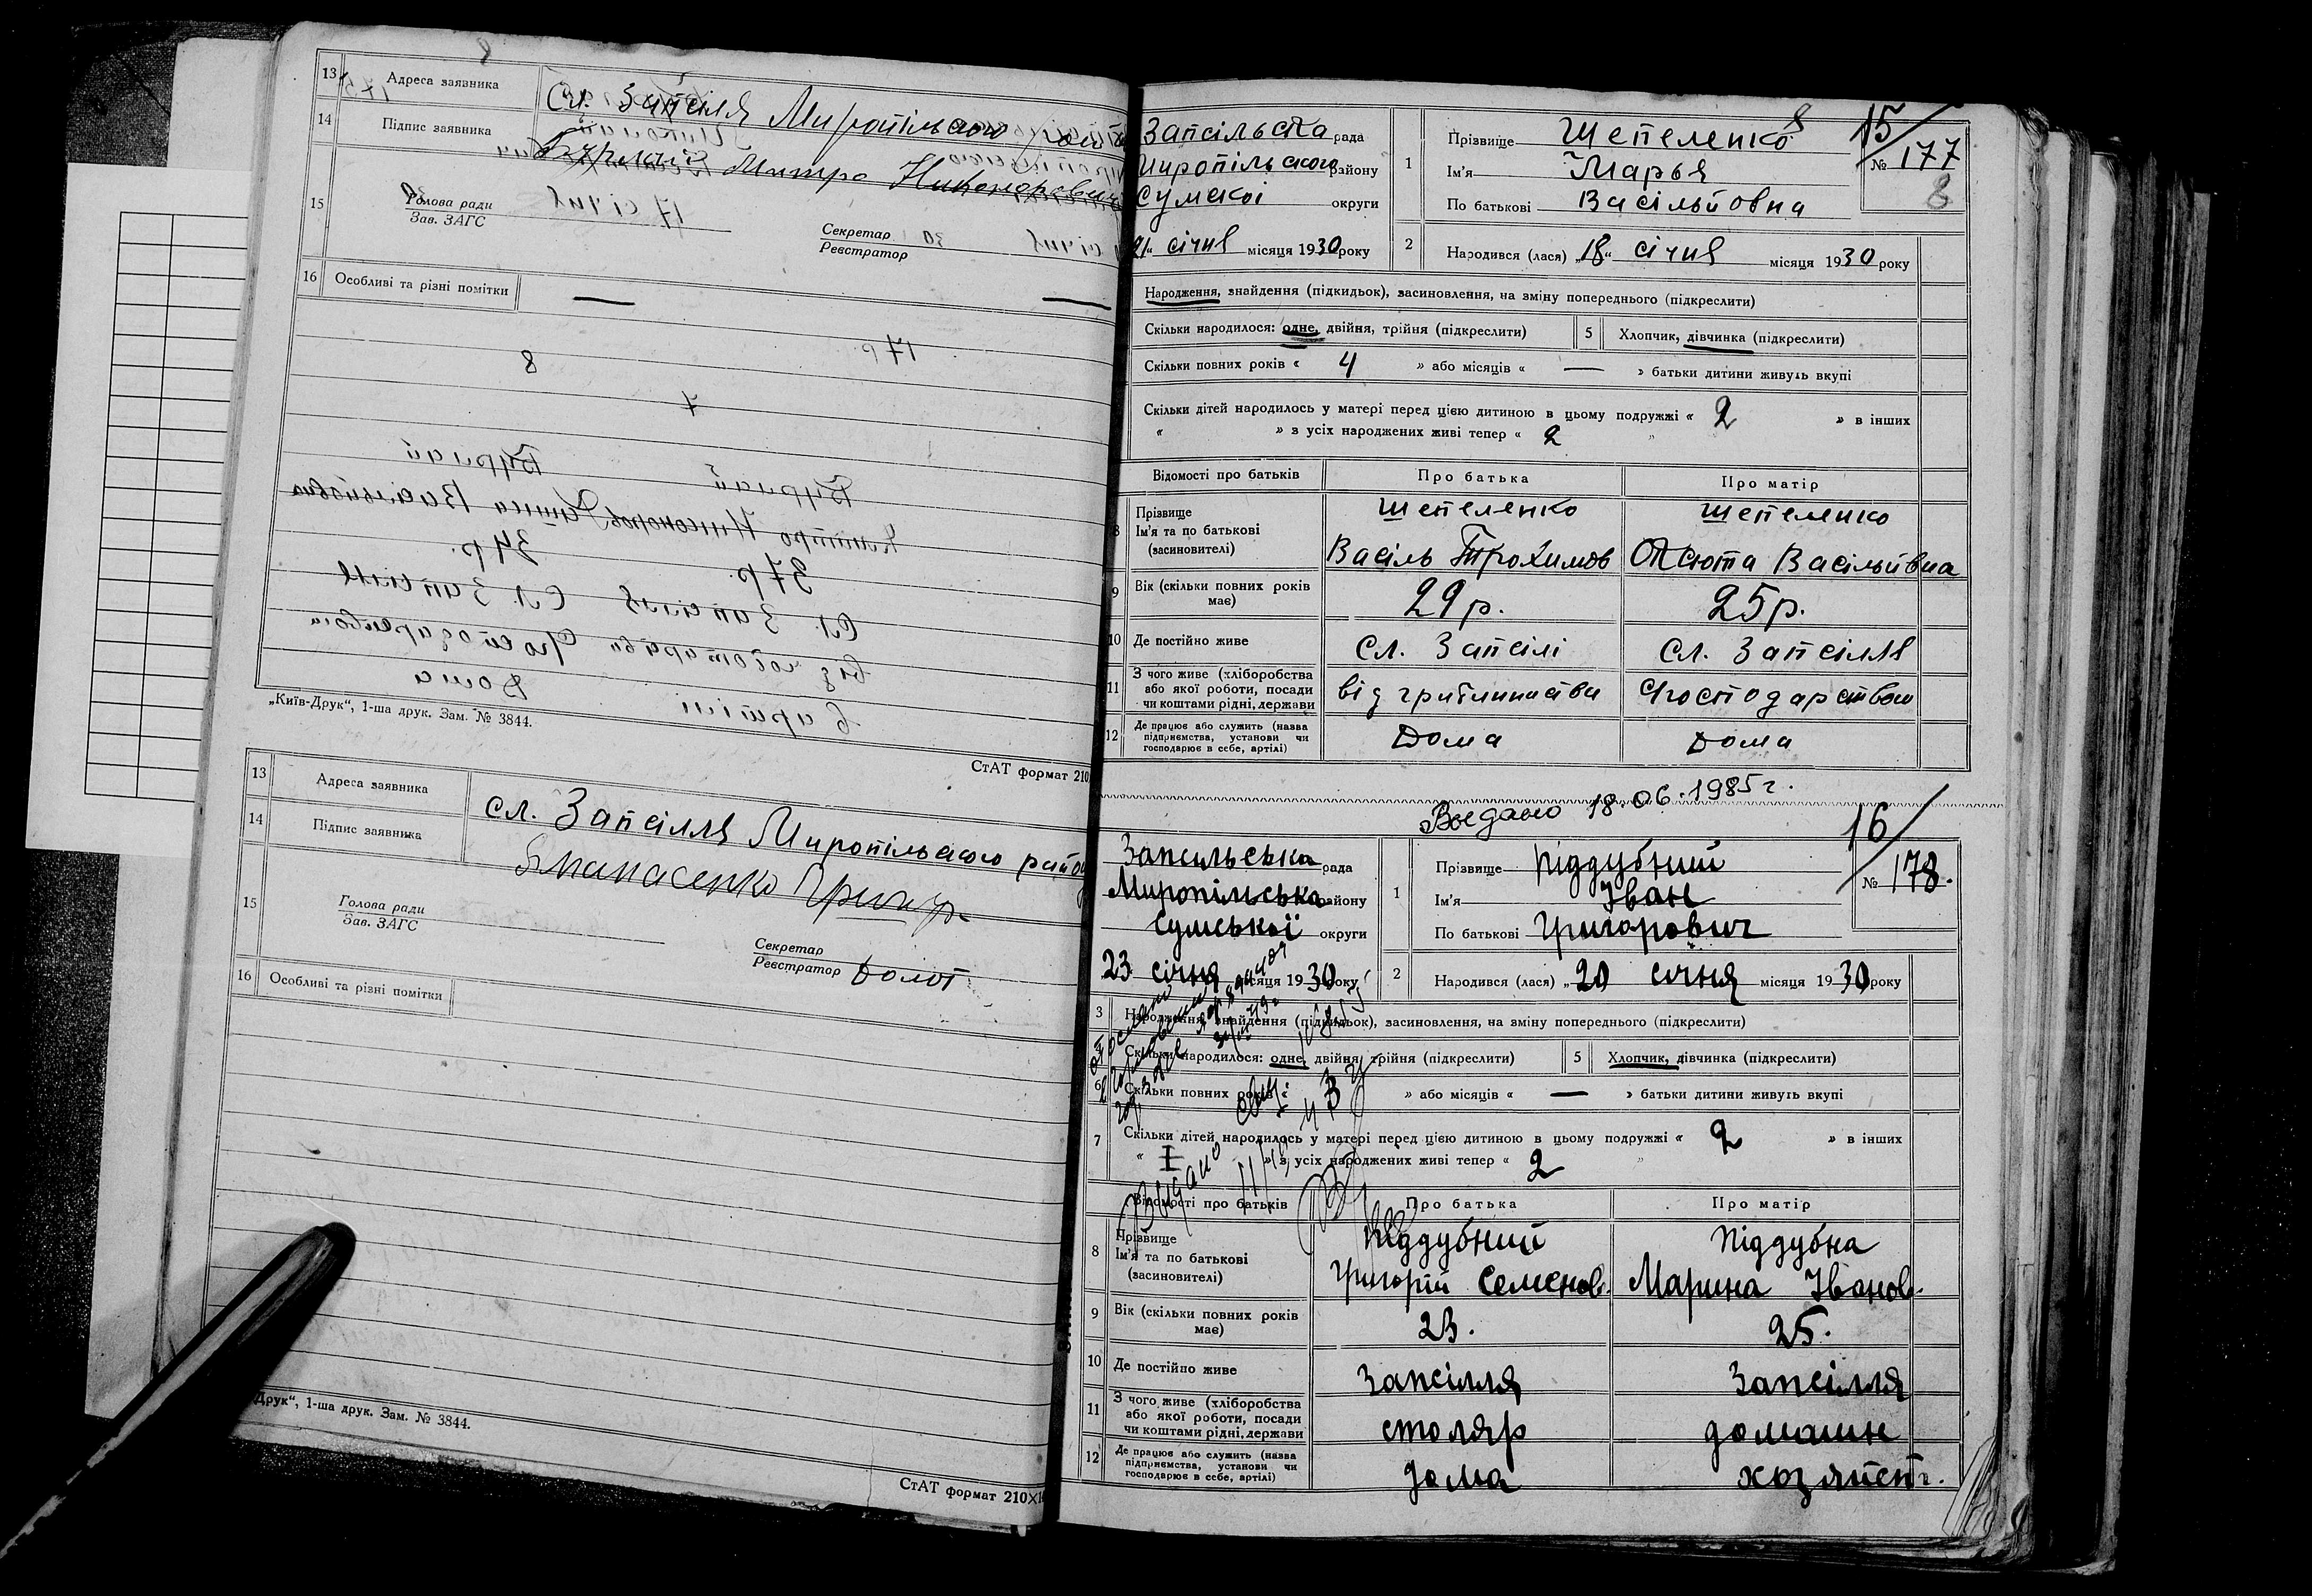 13 Адреса заявника Сл. Запсілля Миропільсько
14 Підпис заявника Бурлай Митро Никонорович
15 Голова ради
Зав. ЗАГС
Секретар
Реєстратор
16 Особливі та різні помітки — —
„Київ-Друк“, 1-ша друк. Зам. № 3844.
СтАТ формат 210
13 Адреса заявника сл. Запсілля Миропільсього району
14 Підпис заявника
15 Голова ради
Зав. ЗАГС
Секретар
Реєстратор
16 Особливі та різні помітки
Друк“, 1-ша друк. Зам. № 3844.
СтАТ формат 210×1
Запсільска рада
Миропільского району
Сумскоі округи
21 січня місяця 1930 року
1 Прізвище Шепеленко
Ім'я Марья
По батькові Васільйовна
15/
№ 177
8
2 Народився (лася) „18“ січня місяця 1930 року
Народження, знайдення (підкидьок), засиновлення, на зміну попереднього (підкреслити)
Скільки народилося: одне, двійня, трійня (підкреслити) 5 Хлопчик, дівчинка (підкреслити)
Скільки повних років « 4 » або місяців « — » батьки дитини живуть вкупі
Скільки дітей народилось у матері перед цією дитиною в цьому подружжі « 2 » в інших
« » з усіх народжених живі тепер « 2 "
Відомості про батьків Про батька Про матір
8 Прізвище
Ім'я та по батькові
(засиновителі)
Шепеленко Шепеленко
Васіль Трохимов Васільйвна
9 Вік (скільки повних років має) 29 р. 25 р.
10 Де постійно живе сл. Запсілі сл. Запсілля
11 З чого живе (хліборобства
або якої роботи, посади
чи коштами рідні, держави
від Господарством
12 Де працює або служить (назва
підприємства, установи чи
господарює в себе, артілі)
Дома Дома
Выдано 18.06.1985 г.
Запсильська рада
Миропільська району
Сумської округи
23 січня місяця 1930 року
1 Прізвище Піддубний
Ім'я Іван
По батькові Григорович
16/
№ 178.
2 Народився (лася) „20 січня місяця 1930 року
3 Народження, знайдення (підкидьок), засиновлення, на зміну попереднього (підкреслити)
Скільки народилося: одне, двійня, трійня (підкреслити) 5 Хлопчик, дівчинка (підкреслити)
6 Скільки повних років « 3 » або місяців « — » батьки дитини живуть вкупі
7 Скільки дітей народилось у матері перед цією дитиною в цьому подружжі « 2 » в інших
« I » з усіх народжених живі тепер « 2 "
Відомості про батьків Про батька Про матір
8 Прізвище
Ім'я та по батькові
(засиновителі)
Піддубний Піддубна
Григорій Семенов. Марина Іванов.
9 Вік (скільки повних років має) 23. 25.
10 Де постійно живе Запсілля Запсілля
11 З чого живе (хліборобства
або якої роботи, посади
чи коштами рідні, держави
столяр домашн
12 Де працює або служить (назва
підприємства, установи чи
господарює в себе, артілі)
дома